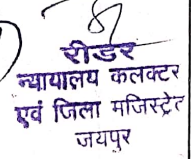 रीडर
न्यायालय कलक्टर
एवं जिला मजिस्ट्रेट
जयपुर